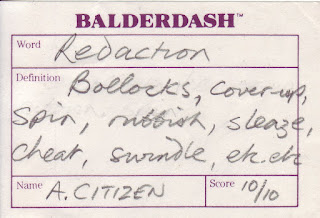 BALDERDASH™
Word
Redaction
Definition
Bollocks, cover-up,
Spin, rubbish, sleaze,
cheat, swindle, etc. etc
Name A. CITIZEN Score 10/10